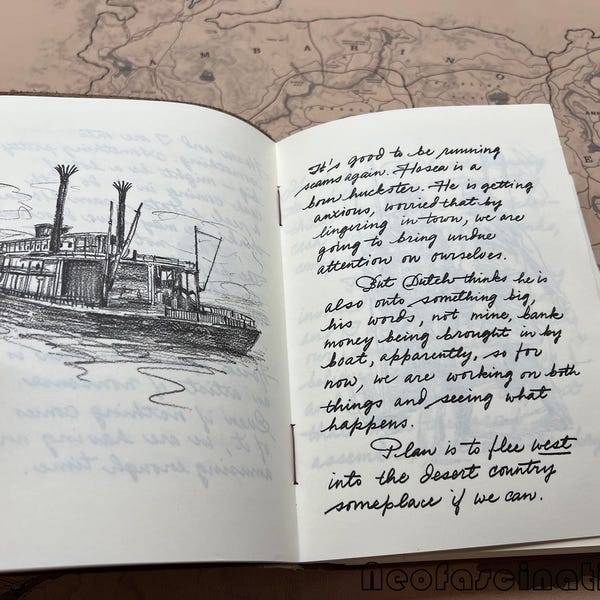 AMBARINO
It's good to be running
scams again. Hosea is a
born huckster. He is getting
anxious, worried that by
lingering in town, we are
going to bring undue
attention on ourselves.
But Dutch thinks he is
also onto something big,
his words, not mine, bank
money being brought in by
boat, apparently, so for
now, we are working on both
things and seeing what
happens.
Plan is to flee west
into the desert country
someplace if we can.